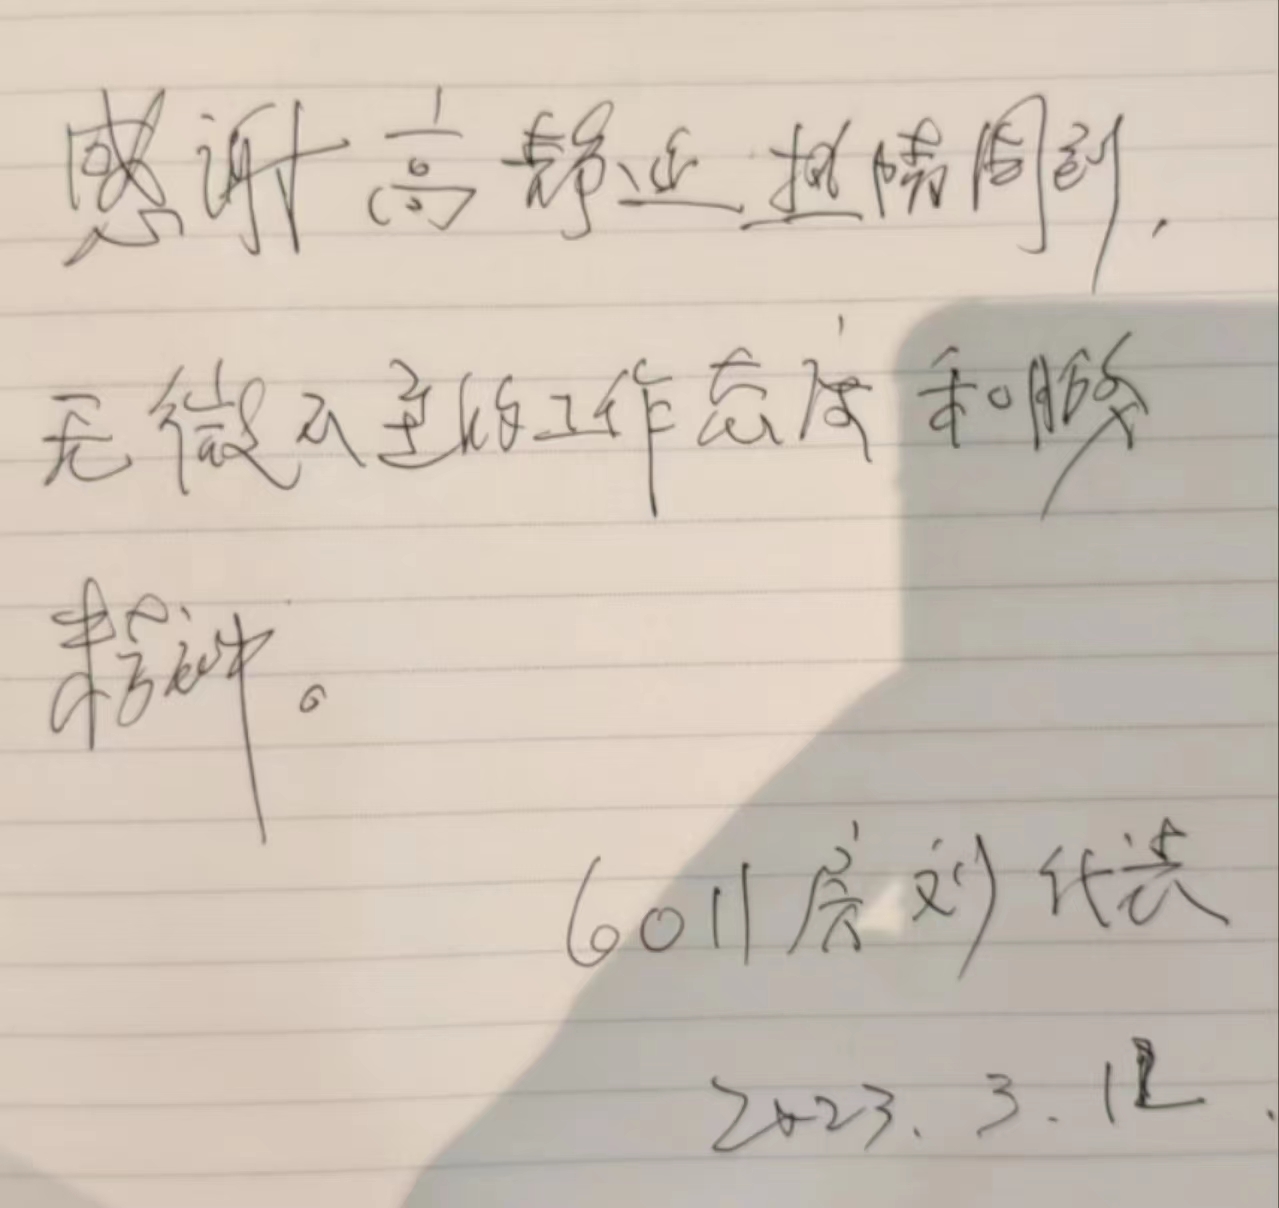 感谢高静近热情周到,
无微不至的工作态度和服务
精神。
6011房刘代表
2023.3.12.